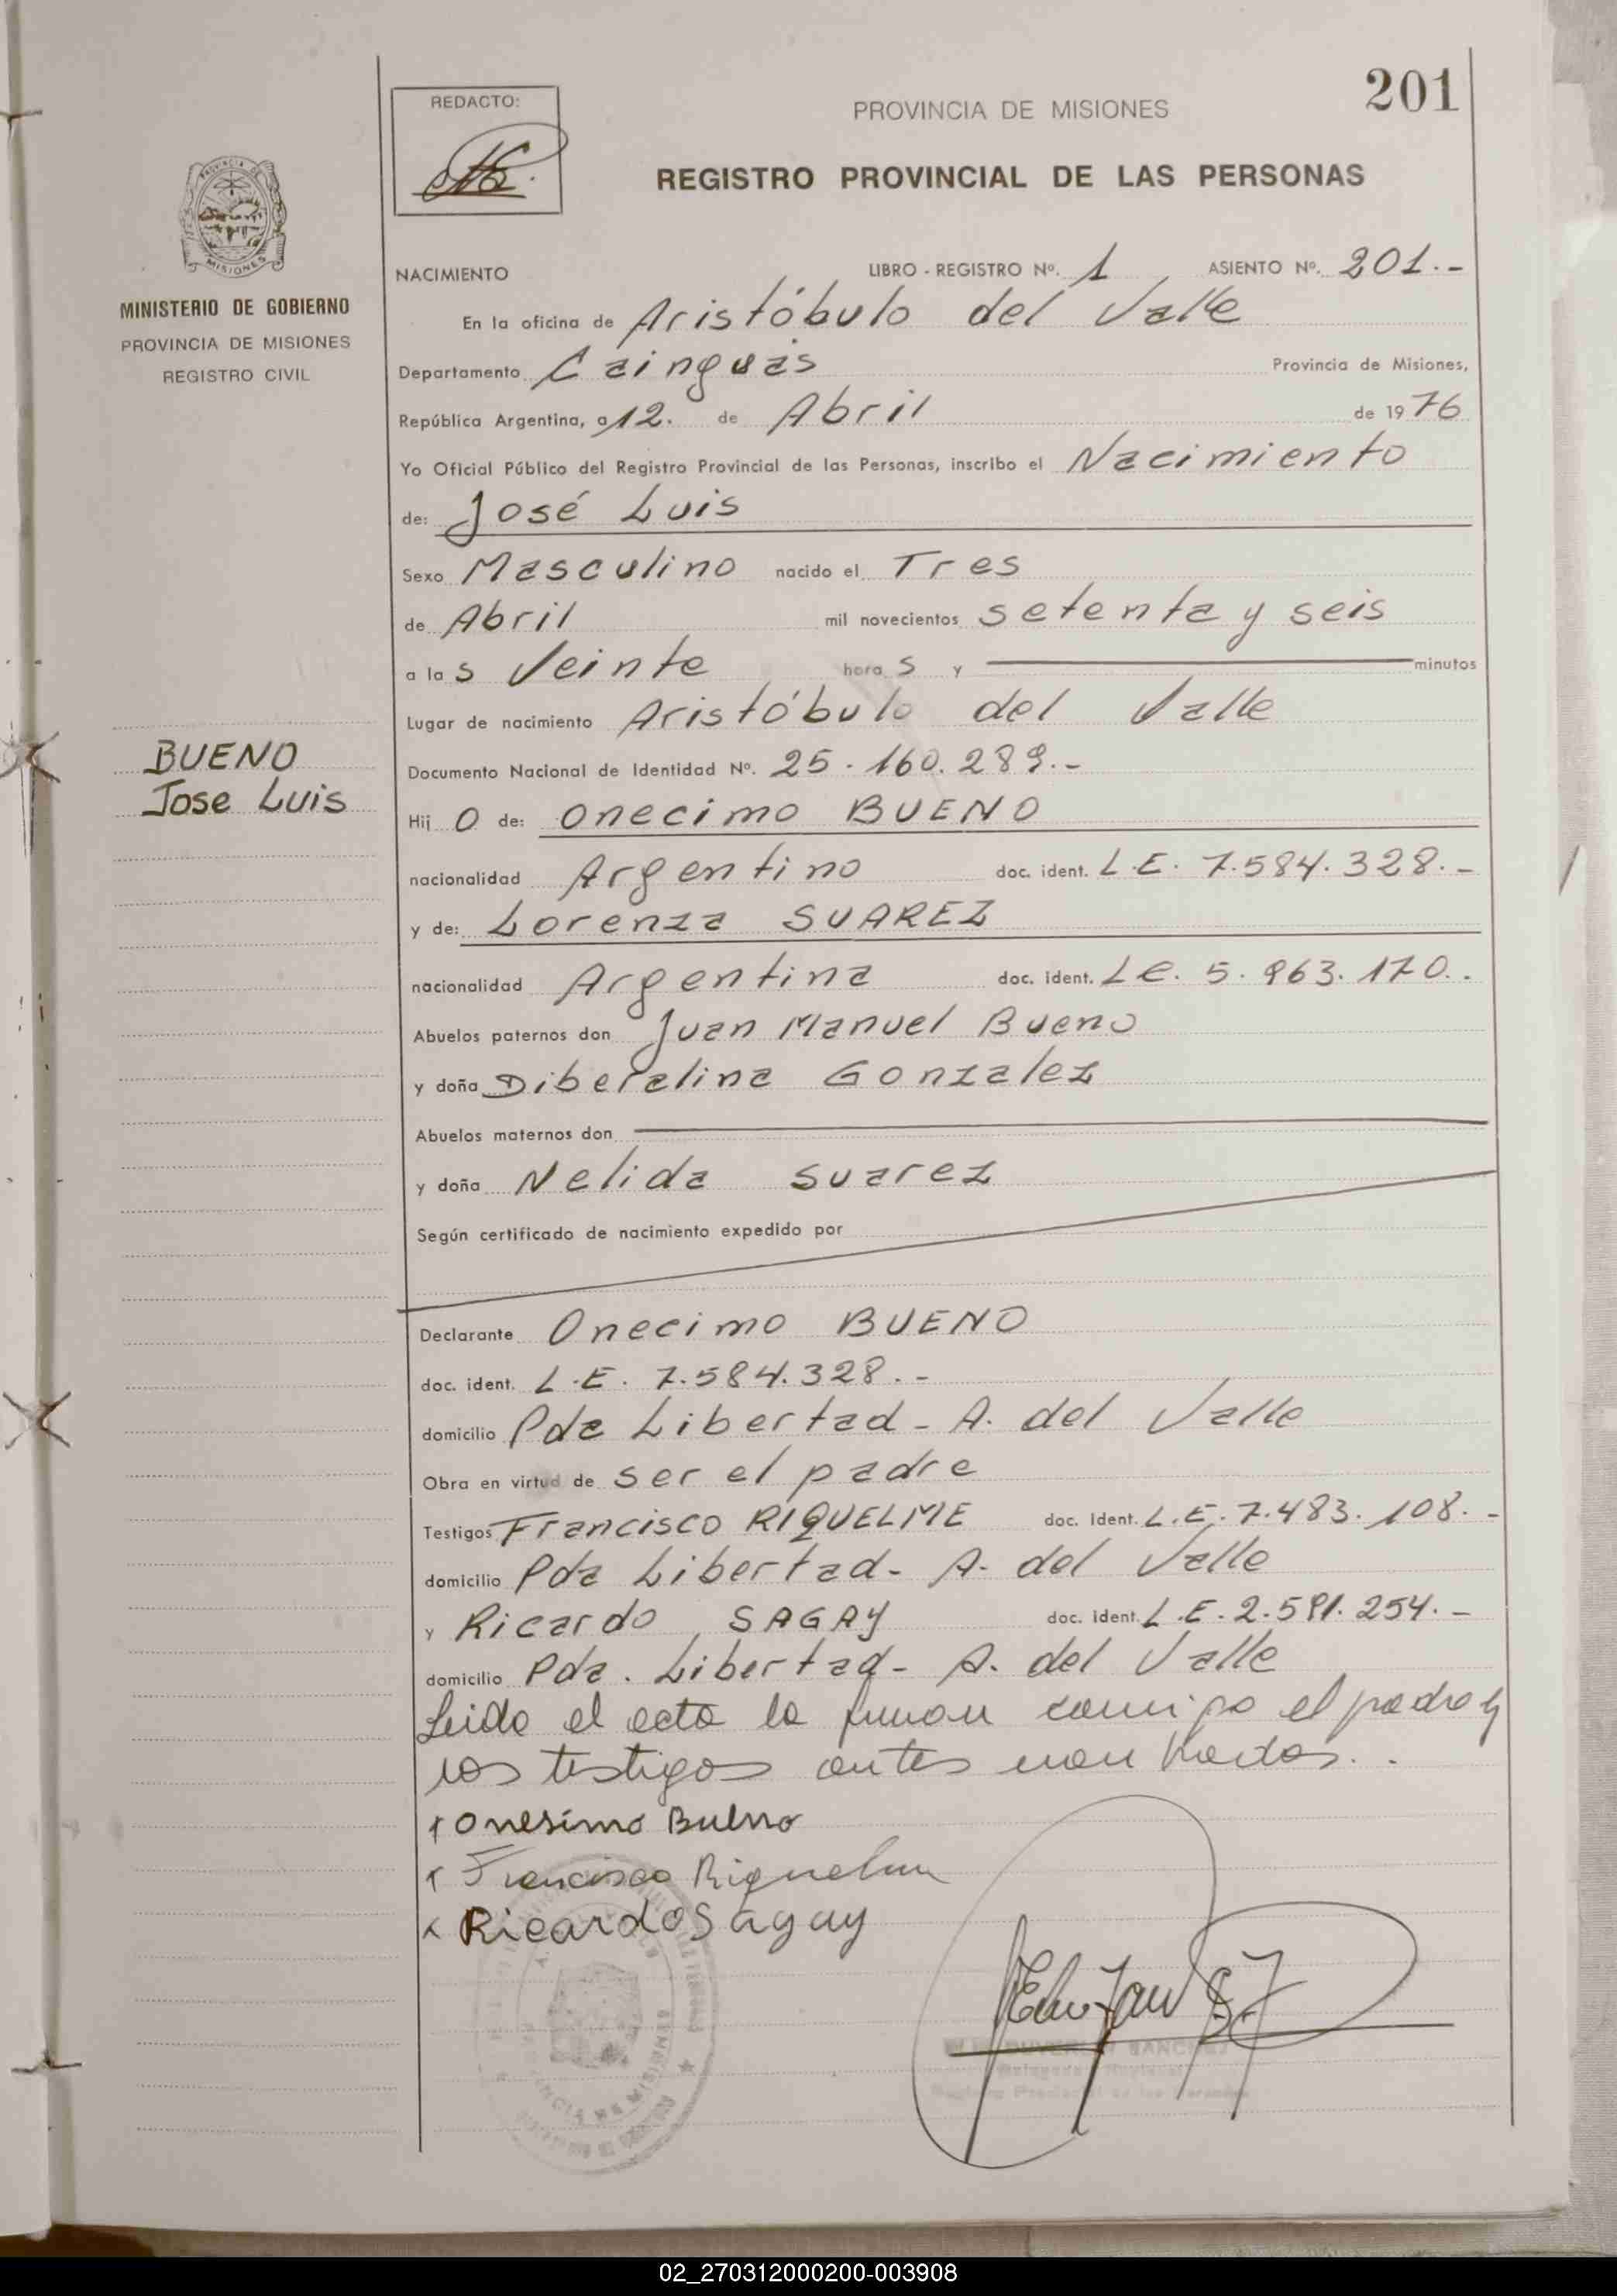 201
REDACTO:
PROVINCIA DE MISIONES
REGISTRO PROVINCIAL DE LAS PERSONAS
PROVINCIA DE
MISIONES
MINISTERIO DE GOBIERNO
PROVINCIA DE MISIONES
REGISTRO CIVIL
NACIMIENTO LIBRO - REGISTRO Nº. 1 ASIENTO Nº. 201.-
En la oficina de Aristóbulo del Valle
Departamento Cainguás Provincia de Misiones,
República Argentina, a 12. de Abril de 1976
Yo Oficial Público del Registro Provincial de las Personas, inscribo el Nacimiento
de: José Luis
Sexo Masculino nacido el Tres
de Abril mil novecientos setenta y seis
a las Veinte horas y minutos
Lugar de nacimiento Aristóbulo del Valle
BUENO
Jose Luis
Documento Nacional de Identidad Nº. 25.160.289.-
Hijo de: Onecimo BUENO
nacionalidad Argentino doc. ident. L.E. 7.584.328.-
y de: Lorenza SUAREZ
nacionalidad Argentina doc. ident. L.E. 5.963.170..
Abuelos paternos don Juan Manuel Bueno
y doña Diberalina Gonzalez
Abuelos maternos don
y doña Nelida Suarez
Según certificado de nacimiento expedido por
Declarante Onecimo BUENO
doc. ident. L.E. 7.584.328.-
domicilio Pda Libertad - A. del Valle
Obra en virtud de ser el padre
Testigos Francisco RIQUELME doc. ident. L.E. 7.483.108.-
domicilio Pda Libertad - A. del Valle
y Ricardo SAGAY doc. ident. L.E. 2.591.254.-
domicilio Pda. Libertad - A. del Valle
Leida el acta la firman conmigo el padre y
los testigos antes nombrados..
Onesimo Bueno
Francisco Riquelme
Ricardo Sagay
SANCHEZ
02_270312000200-003908